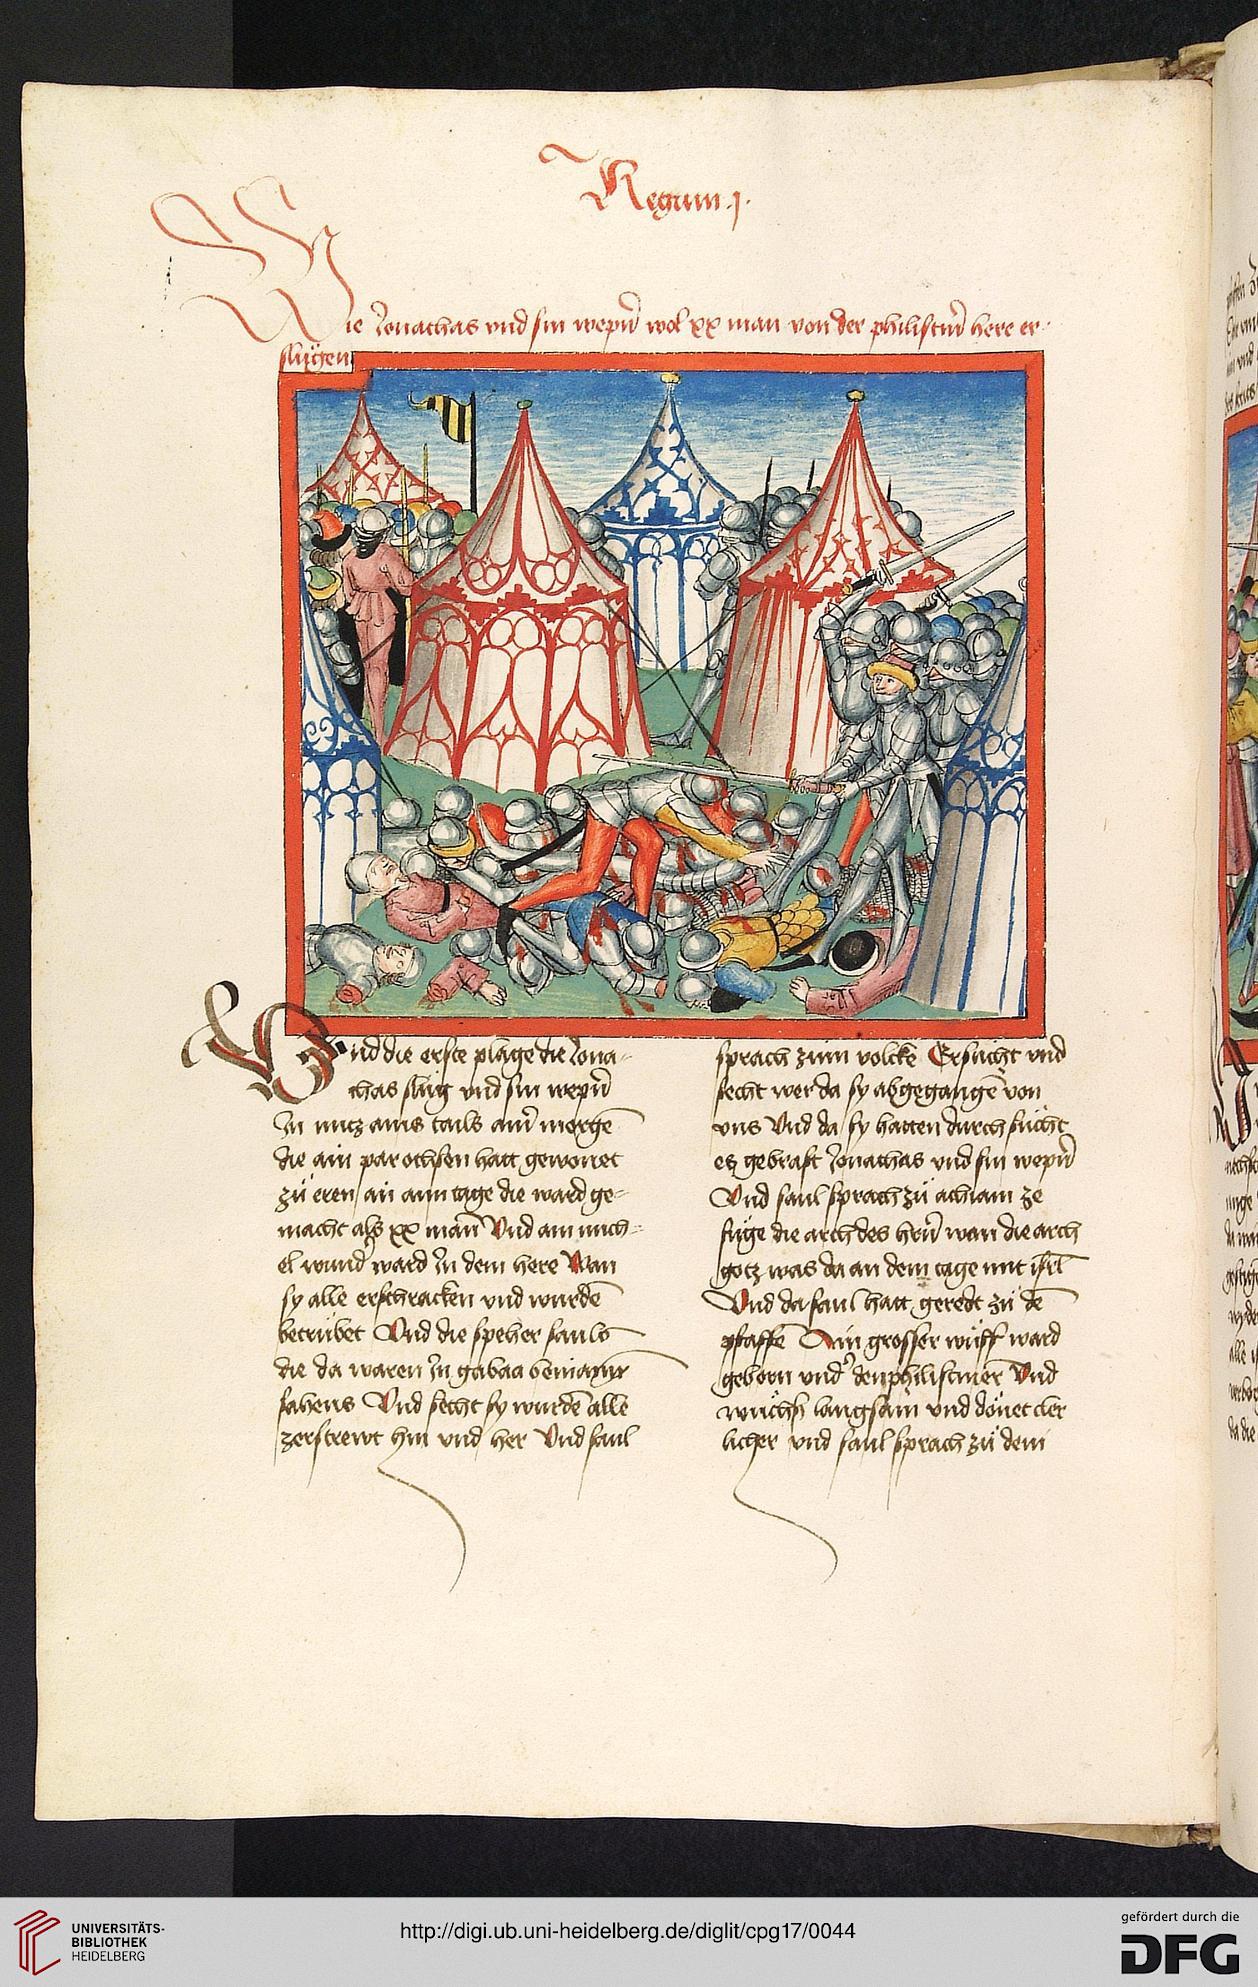 Regum .j.
Wie Jonathas vnd sin wepn̄ wol xx man von der philistin̄ here er-
slügen
Vnd die erste plage die Jona-
thas slüg vnd sin wepn̄
In mitz ains tails ainr̄ morgē
die ain par ochsen hatt gewonet
zü eren an aim tage die ward ge-
macht als xx man̄ Vnd ain mich-
el wund̄ ward In dem here Wan
sy alle erschracken vnd wurdē
betrübet Vnd die speher sauls
die da waren In gabaa beniamin
sahens Vnd secht sy wurdē alle
zerstrewt hin vnd her Vnd saul
sprach züm volcke Ersücht vnd
secht wer da sy abgegangē von
vns Vnd da sy hatten durch sücht
es gebrast Jonathas vnd sin wepn̄
Vnd saul sprach zü achiam ze
füge die arch des hrn̄ wan die arch
gotz was da an dem tage mit isrl̄
Vnd da saul hatt geredt zü dē
pfaffē Ain grosser wüff ward
geborn vnd̄ den philistinē Vnd
wüchß langsam vnd dönet cler
licher vnd saul sprach zü dem
UNIVERSITÄTS-
BIBLIOTHEK
HEIDELBERG
http://digi.ub.uni-heidelberg.de/diglit/cpg17/0044
gefördert durch die
DFG